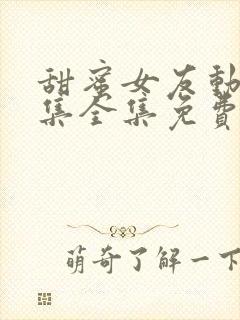 甜蜜女友動
集全集免費
萌奇了解一下